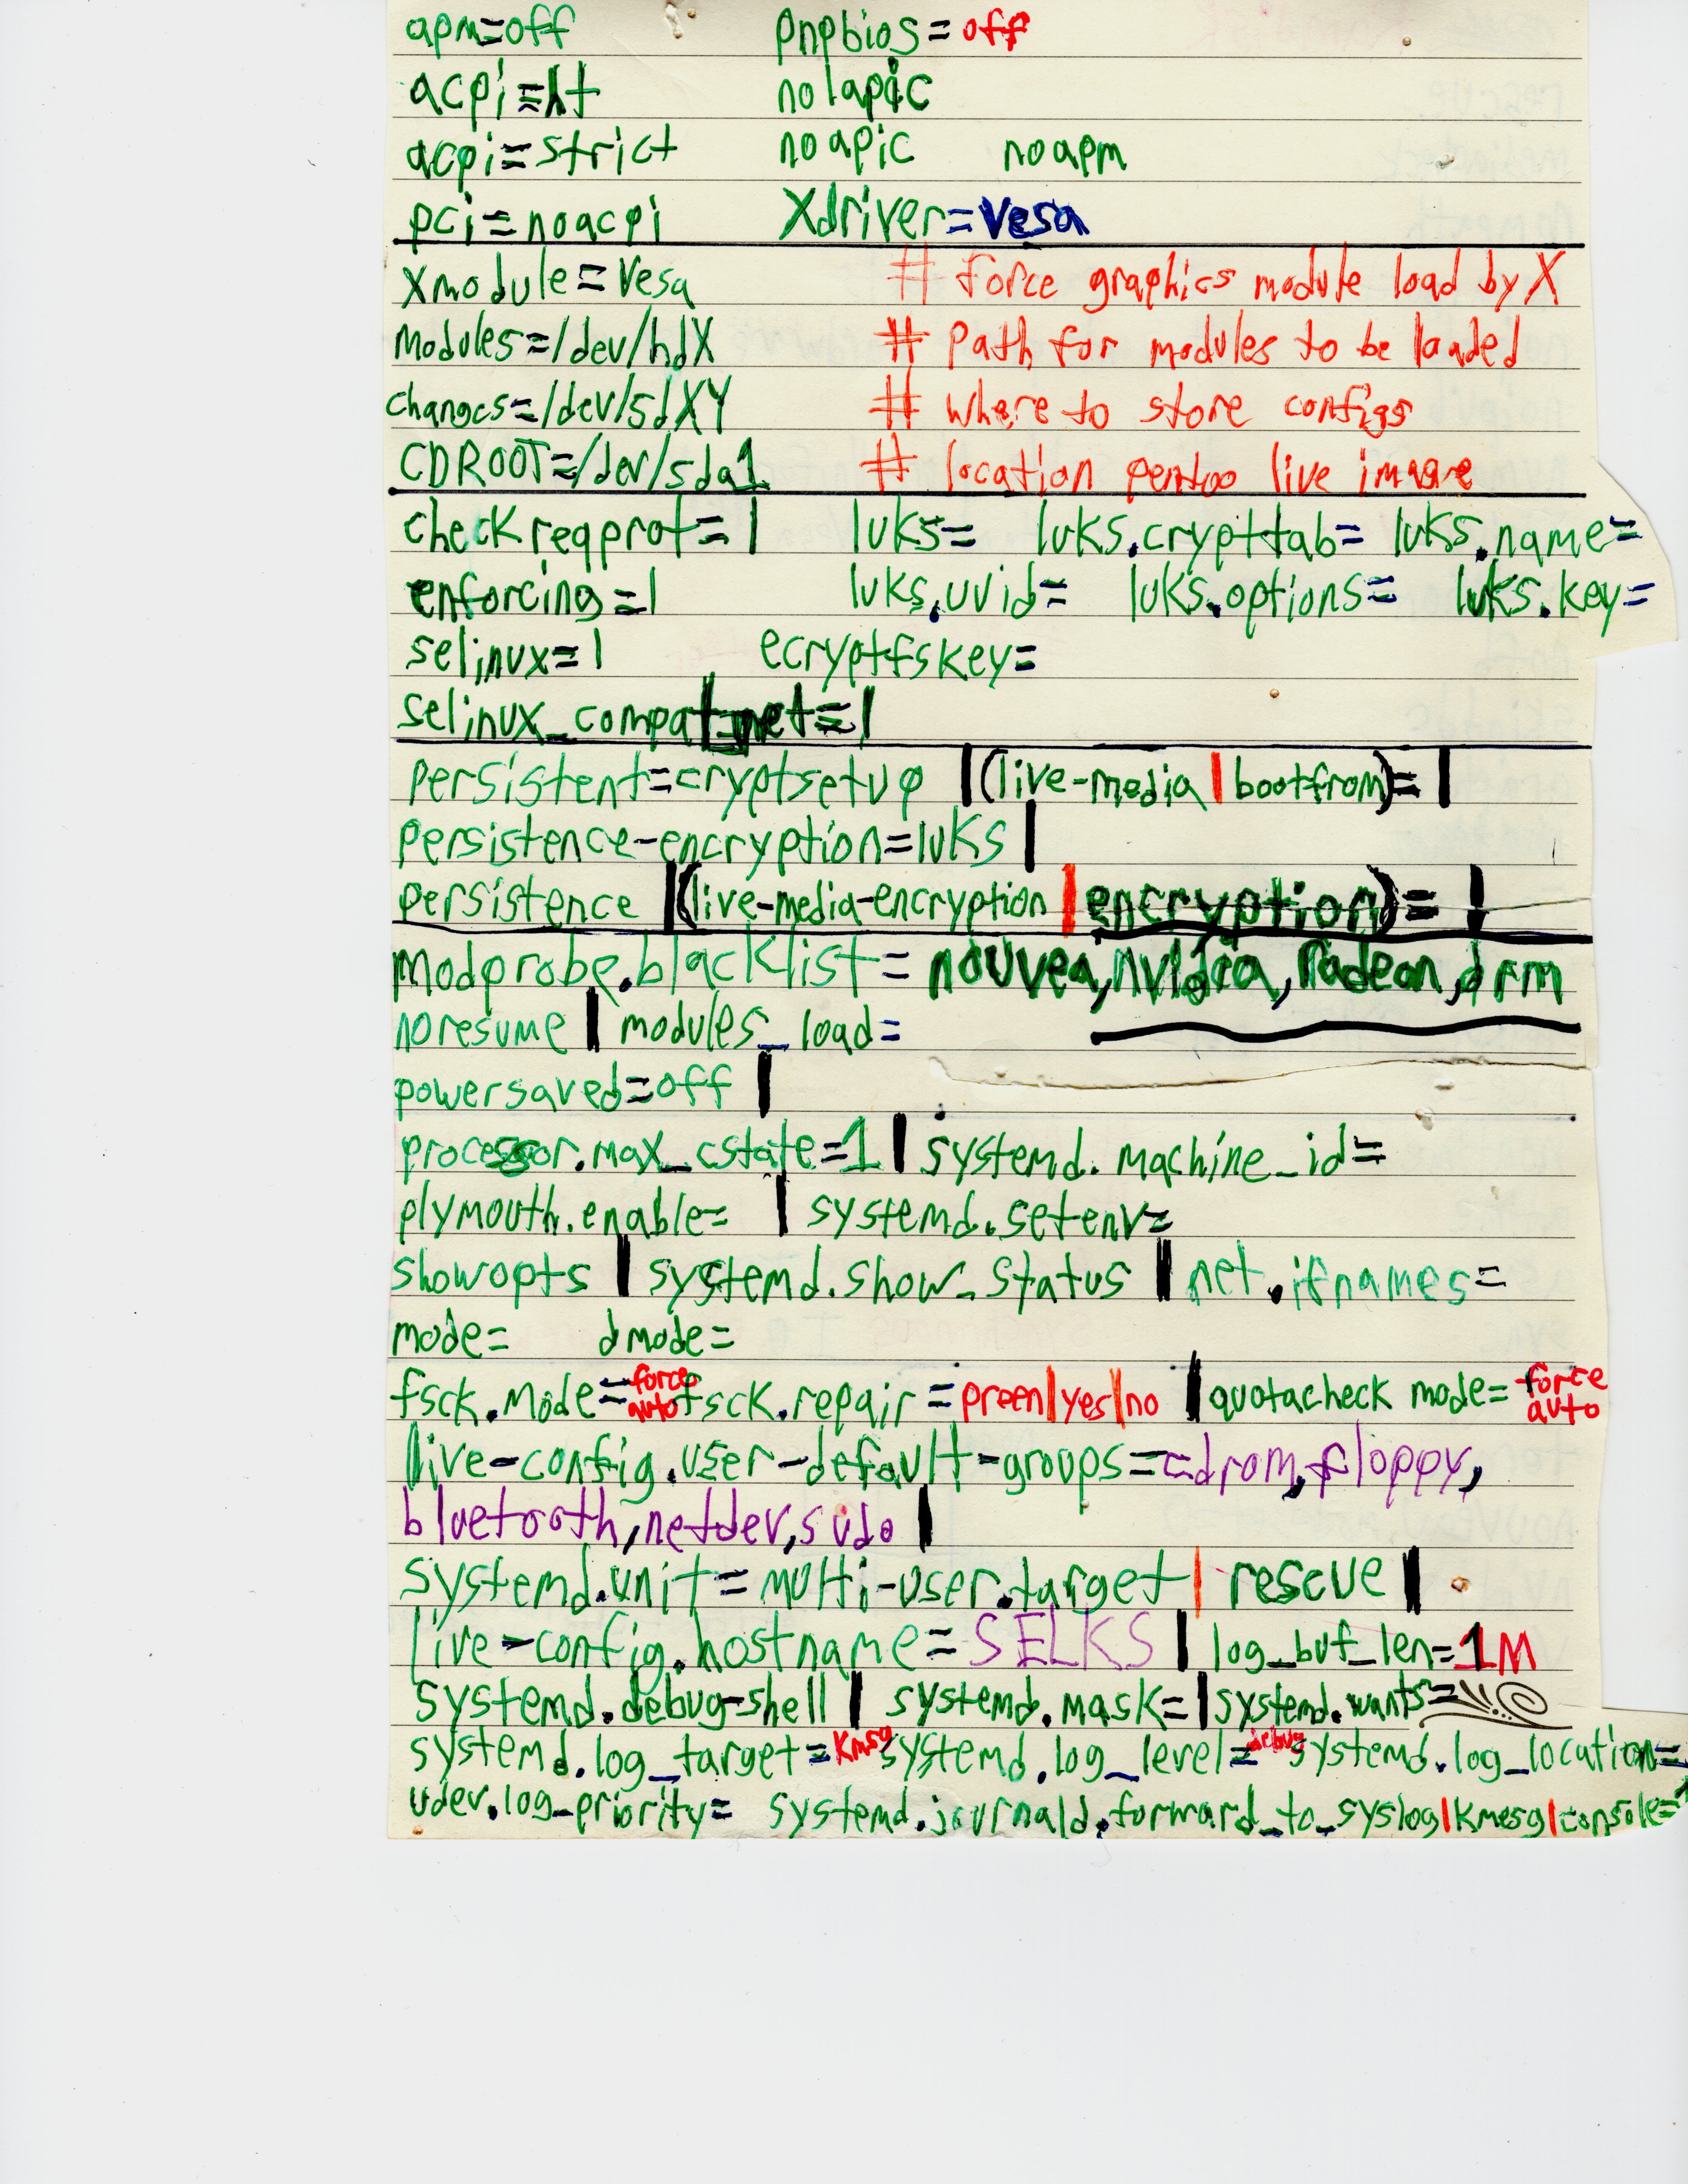 apm=off pnpbios=off
acpi=ht nolapic
acpi=strict noapic noapm
pci=noacpi Xdriver=vesa
xmodule=vesa # force graphics module load by X
modules=/dev/hdX # Path for modules to be loaded
changes=/dev/sdXY # where to store configs
CDROOT=/dev/sda1 # location pentoo live image
checkreqprot=1 luks= luks.crypttab= luks.name=
enforcing=1 luks.uuid= luks.options= luks.key=
selinux=1 ecryptfskey=
selinux_compat_net=1
persistent=cryptsetup |(live-media|bootfrom)=|
persistence-encryption=luks |
persistence |(live-media-encryption|encryption)= |
modprobe.blacklist=nouvea,nvidia,radeon,drm
noresume | modules_load=
powersaved=off |
processor.max_cstate=1 | systemd.machine_id=
plymouth.enable= | systemd.setenv=
showopts | systemd.show_status | net.ifnames=
mode= dmode=
fsck.mode=force auto fsck.repair=preen|yes|no | quotacheck mode=force auto
live-config.user-default-groups=cdrom,floppy,
bluetooth,netdev,sudo |
systemd.unit=multi-user.target | rescue |
live-config.hostname=SELKS | log_buf_len=1M
systemd.debug-shell | systemd.mask= | systemd.wants=
systemd.log_target=kmsg systemd.log_level=debug systemd.log_location=
udev.log_priority= systemd.journald.forward_to_syslog|kmesg|console=